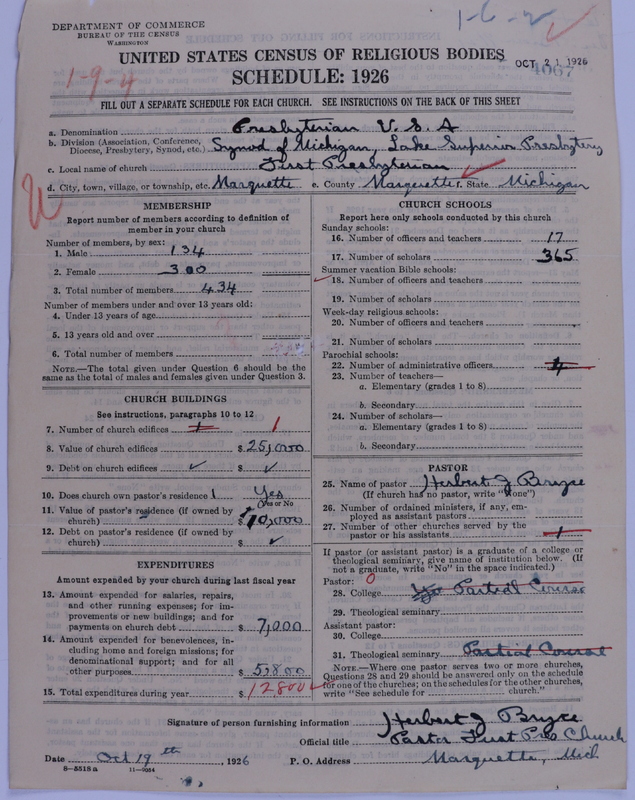 DEPARTMENT OF COMMERCE
BUREAU OF THE CENSUS
WASHINGTON
1-6-2
UNITED STATES CENSUS OF RELIGIOUS BODIES
OCT 21 1926
4067
SCHEDULE: 1926
1-9-4
FILL OUT A SEPARATE SCHEDULE FOR EACH CHURCH. SEE INSTRUCTIONS ON THE BACK OF THIS SHEET
a. Denomination Presbyterian U.S.A
b. Division (Association, Conference, Diocese, Presbytery, Synod, etc.) Synod of Michigan, Lake Superior Presbytery
c. Local name of church First Presbyterian
d. City, town, village, or township, etc. Marquette e. County Marquette f. State Michigan
MEMBERSHIP
Report number of members according to definition of
member in your church
Number of members, by sex:
1. Male 134
2. Female 300
3. Total number of members 434
Number of members under and over 13 years old:
4. Under 13 years of age
5. 13 years old and over
6. Total number of members
NOTE.—The total given under Question 6 should be
same as the total of males and females given under Question 3.
CHURCH BUILDINGS
See instructions, paragraphs 10 to 12
7. Number of church edifices 1 1
8. Value of church edifices $ 25,000
9. Debt on church edifices ✓ $ ✓
10. Does church own pastor's residence 1 Yes
Yes or No
11. Value of pastor's residence (if owned by
church) $ 10,000
12. Debt on pastor's residence (if owned by
church) $ ✓
EXPENDITURES
Amount expended by your church during last fiscal year
13. Amount expended for salaries, repairs,
and other running expenses; for im-
provements or new buildings; and for
payments on church debt $ 7,000
14. Amount expended for benevolences, in-
cluding home and foreign missions; for
denominational support; and for all
other purposes $ 5,800
15. Total expenditures during year $ 12800
CHURCH SCHOOLS
Report here only schools conducted by this church
Sunday schools:
16. Number of officers and teachers 17
17. Number of scholars 365
Summer vacation Bible schools:
18. Number of officers and teachers
19. Number of scholars
Week-day religious schools:
20. Number of officers and teachers
21. Number of scholars
Parochial schools:
22. Number of administrative officers 4
23. Number of teachers—
a. Elementary (grades 1 to 8)
b. Secondary
24. Number of scholars—
a. Elementary (grades 1 to 8)
b. Secondary
PASTOR
25. Name of pastor Herbert J Bryce
(If church has no pastor, write "None")
26. Number of ordained ministers, if any, em-
ployed as assistant pastors
27. Number of other churches served by the
pastor or his assistants 1
If pastor (or assistant pastor) is a graduate of a college or
theological seminary, give name of institution below. (If
not a graduate, write "No" in the space indicated.)
Pastor: 0
28. College Partial Course
29. Theological seminary
Assistant pastor:
30. College
31. Theological seminary Partial Course
NOTE.—Where one pastor serves two or more churches,
Questions 28 and 29 should be answered only on the schedule
for one of the churches; on the schedules for the other churches,
write "See schedule for church."
Signature of person furnishing information Herbert J Bryce
Official title Pastor First Pres Church
Date Oct 19th, 1926 P. O. Address Marquette, Mich.
8—5518a 11—9054